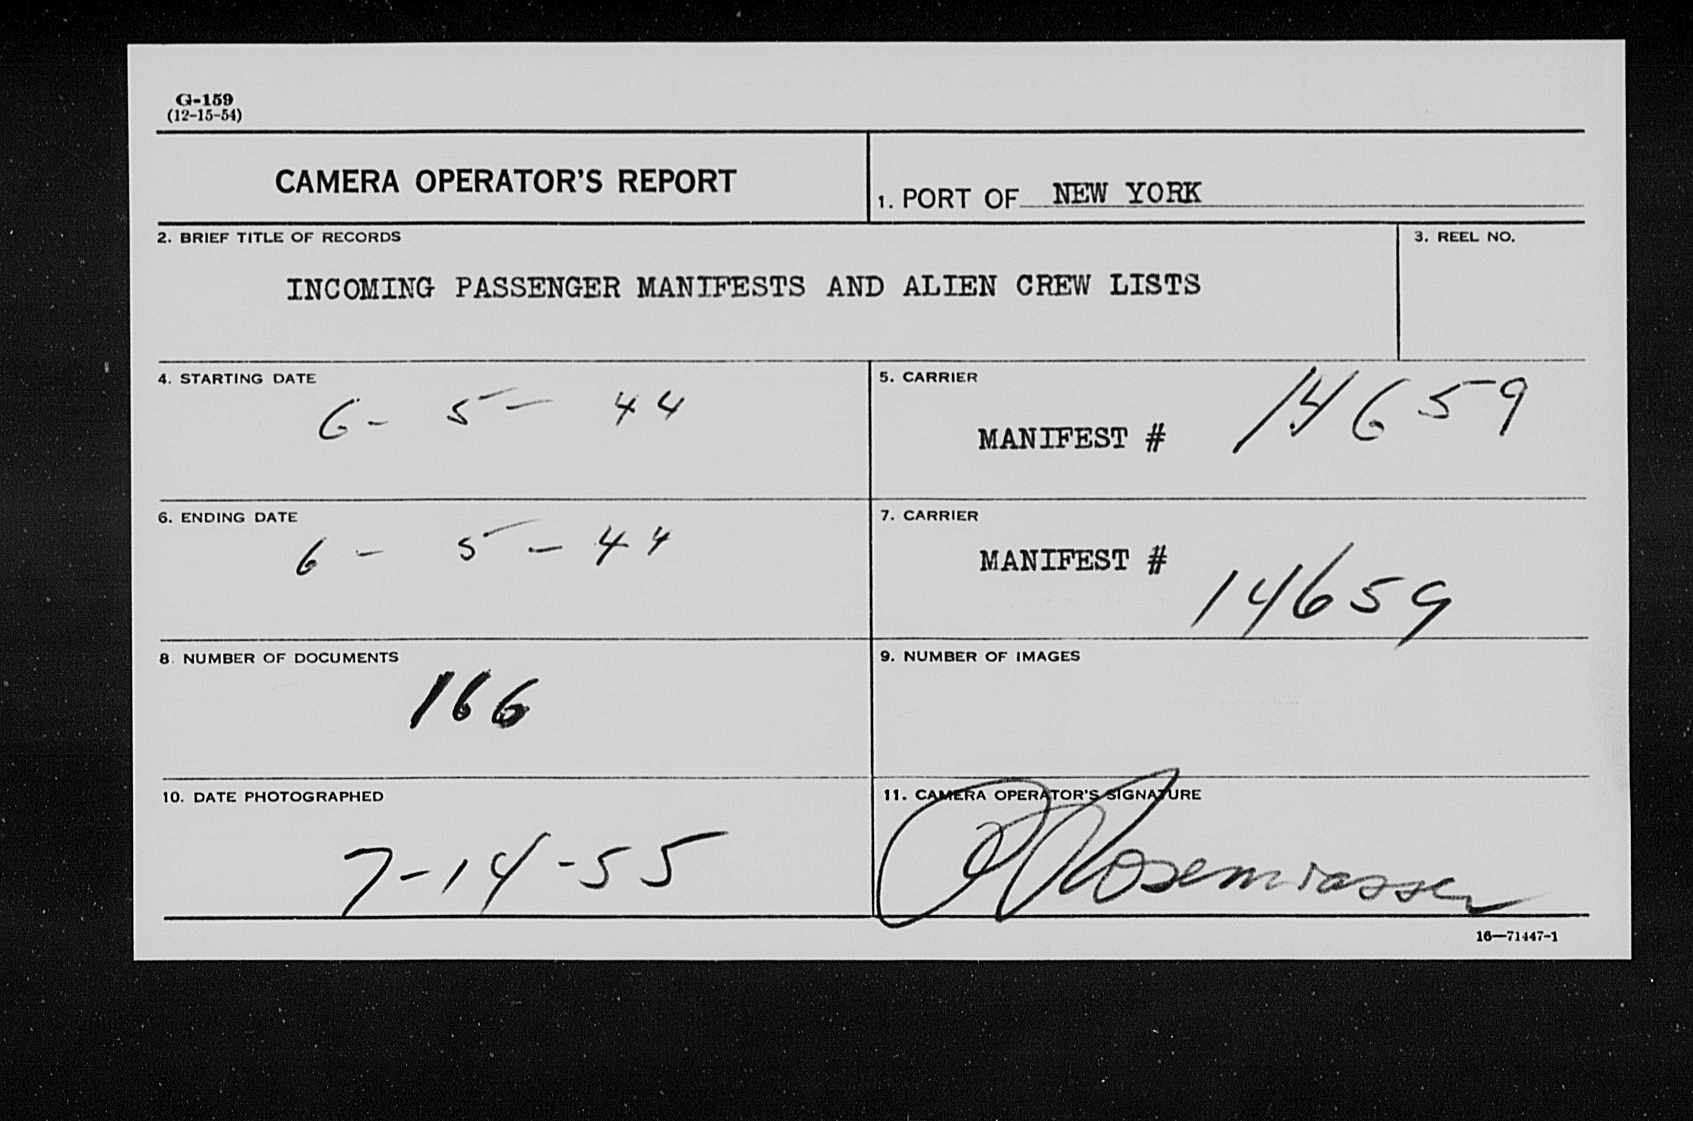 G-159
(12-15-54)
CAMERA OPERATOR'S REPORT
1. PORT OF NEW YORK
2. BRIEF TITLE OF RECORDS
3. REEL NO.
INCOMING PASSENGER MANIFESTS AND ALIEN CREW LISTS
4. STARTING DATE
5. CARRIER
6-5-44
MANIFEST # 14659
6. ENDING DATE
7. CARRIER
6-5-44
MANIFEST # 14659
8. NUMBER OF DOCUMENTS
9. NUMBER OF IMAGES
166
10. DATE PHOTOGRAPHED
11. CAMERA OPERATOR'S SIGNATURE
7-14-55
16—71447-1